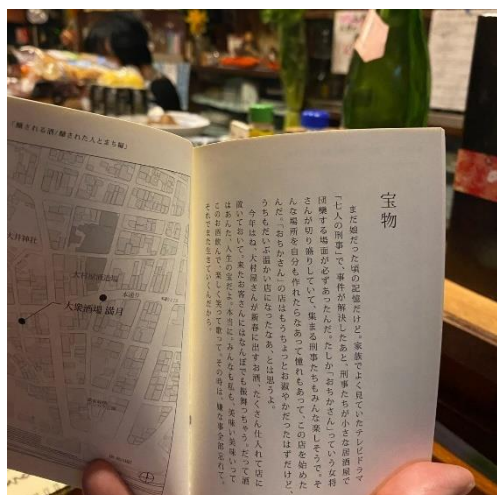 宝物
まだ娘だった頃の記憶だけど。家族でよく見ていたテレビドラマ
『七人の刑事』で、事件が解決したあと、刑事たちが小さな居酒屋で
団欒する場面が必ずあったんだ。たしか「おちかさん」っていう女将
さんが切り盛りしていて、集まる刑事たちもみんな楽しそうで。そ
んな場所を自分も作れたらなあって憧れもあって、この店を始めた
んだ。「おちかさん」の店はもうちょっとお淑やかだったはずだけど、
うちもだいぶ温かい店になったなあ、とは思うよ。
今年はね、大村屋さんが新春に出すお酒、たくさん仕入れて店に
置いておいて、来たお客さんにはなんぼでも振舞っちゃう。だって酒
はあんた、人生の宝だよ。本当に。みんなも私も、美味い美味いって
このお酒飲んで、楽しく笑って歌って。その時は、嫌な事全部忘れて。
それでまた生きていくんだから。
「醸される酒/醸された人とまち編」
大井神社
大村屋酒造場
本通り
大衆酒場 満月